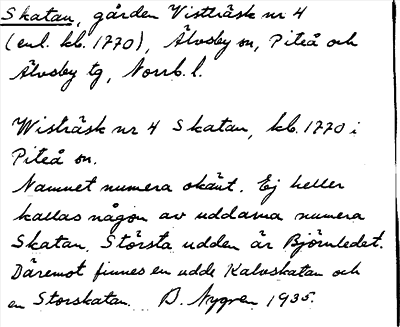 Skatan, gården Visträsk nr 4
(enl. kb. 1770), Älvsby sn, Piteå och
Älvsby tg, Norrb. l.
Wisträsk nr 4 Skatan, kb. 1770 i
Piteå sn.
Namnet numera okänt. Ej heller
kallas någon av uddarna numera
Skatan. Största udden är Björnledet.
Däremot finnes en udde Kalvskatan och
en Storskatan. D. Nygren 1935.